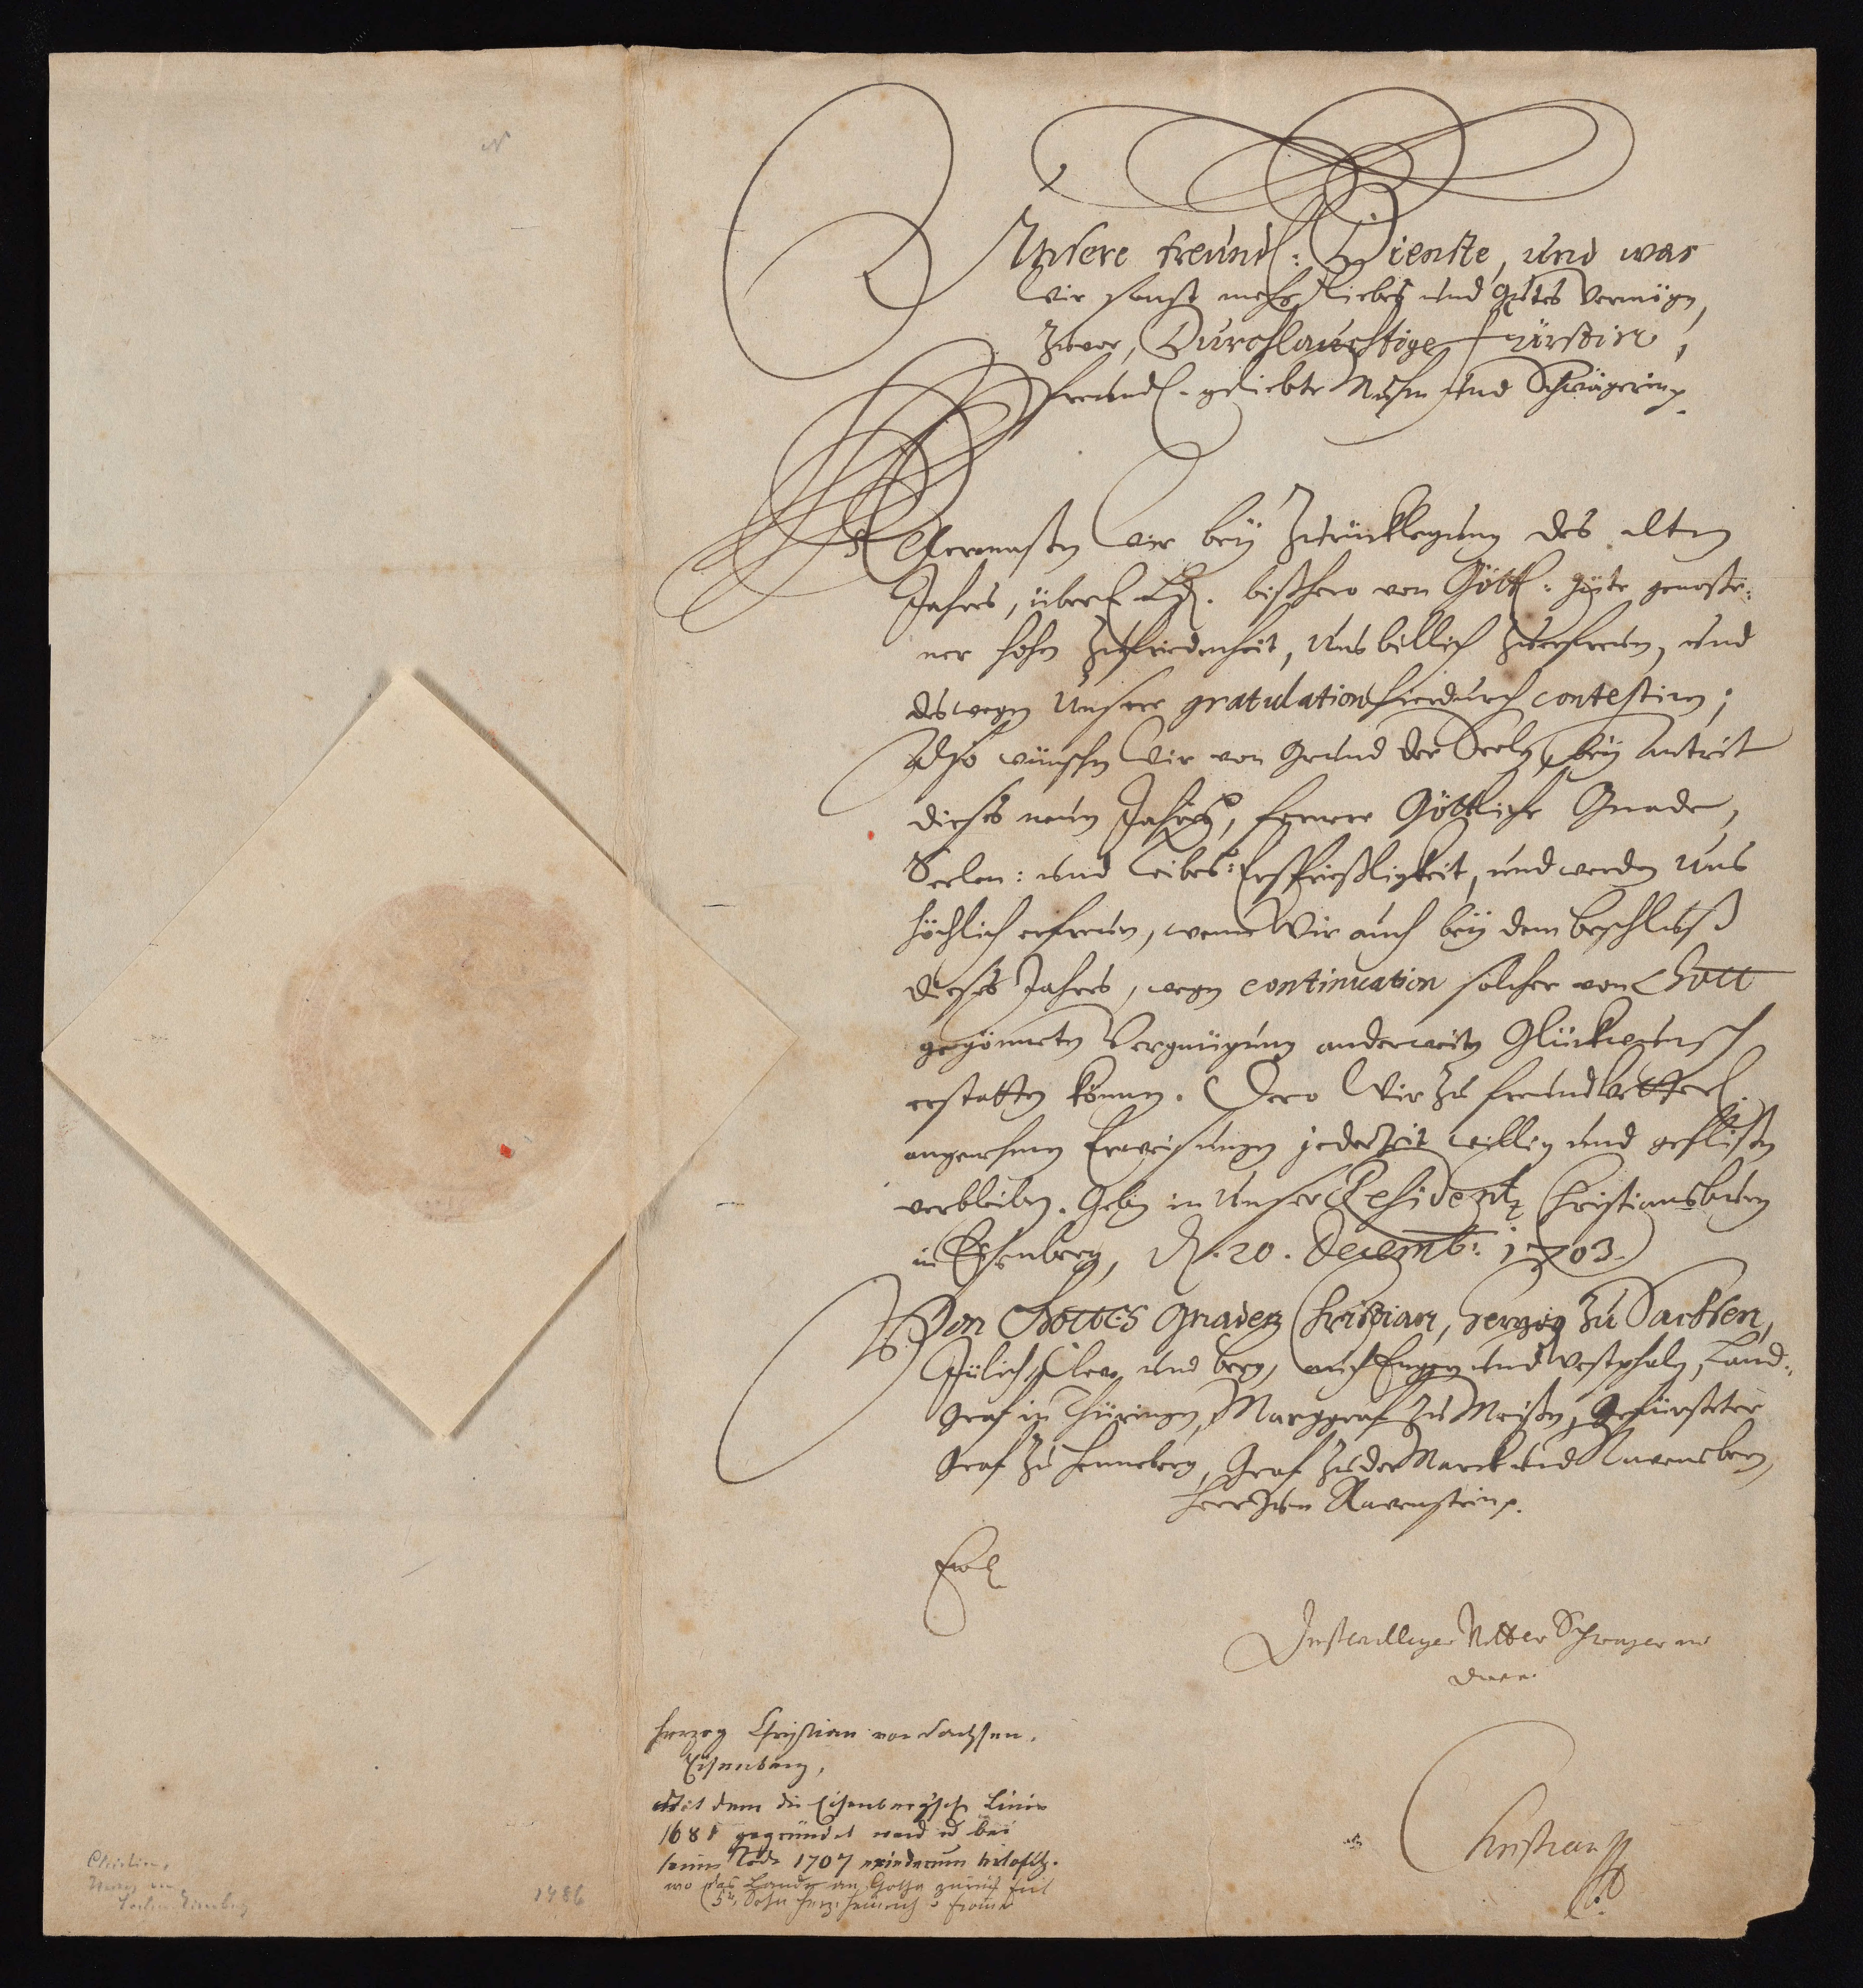 N
Unsere freundl: Dienste, und was
Wir sonst mehr Liebes und Gutes vermögen,
zuvor, Durchlauchtige Fürstin,
freundl. geliebte Muhm und Schwägerin.
Gleichermaßen Wir bey Zurücklegung des alten
Jahres, über E. Ld. bißhero von Göttl: Güte genoße-
ner hohen Zufriedenheit, Uns billich zuerfreuen, und
deswegen Unsere gratulation hierdurch contestiren;
Also wünschen Wir von Grund der Seelen, bey Antrit
dieses neuen Jahres, fernere Göttliche Gnade,
Seelen: und Leibes: Ersprießligkeit, und werden Uns
höchlich erfreuen, wenn Wir auch bey dem beschluß
dieses Jahres, wegen continuation solcher von Gott
gegönneten Vergnügung anderweiten Glückwunsch
erstatten können. Dero Wir zu freundvetterl.
angenehmen Erweisungen jederzeit willig und geflißen
verbleiben. Geben in Unser Residentz Christiansburg
in Eysenberg, d. 20. Decemb: 1703.
Von Gottes Gnaden Christian, Herzog zu Sachsen,
Jülich, Cleve und Berg, auch Engern und Westphalen, Land-
Graf in Thüringen, Marggraf zu Meißen, Gefürsteter
Graf zu Henneberg, Graf zu der Marck und Ravensberg,
Herr zum Ravenstein.
EwL
Dinstwilliger Vetter Schwager und
Christian
Herzog Christian von Sachsen.
Eisenberg,
Mit dem die Eisenbergsche Linie
1681 gegründet ward u bei
seinem Tode 1707 wiederum
wo das Land an Gotha zurück fiel
5r. Sohn Herz.
Christian,
Herzog von
Sachsen Eisenberg
1486